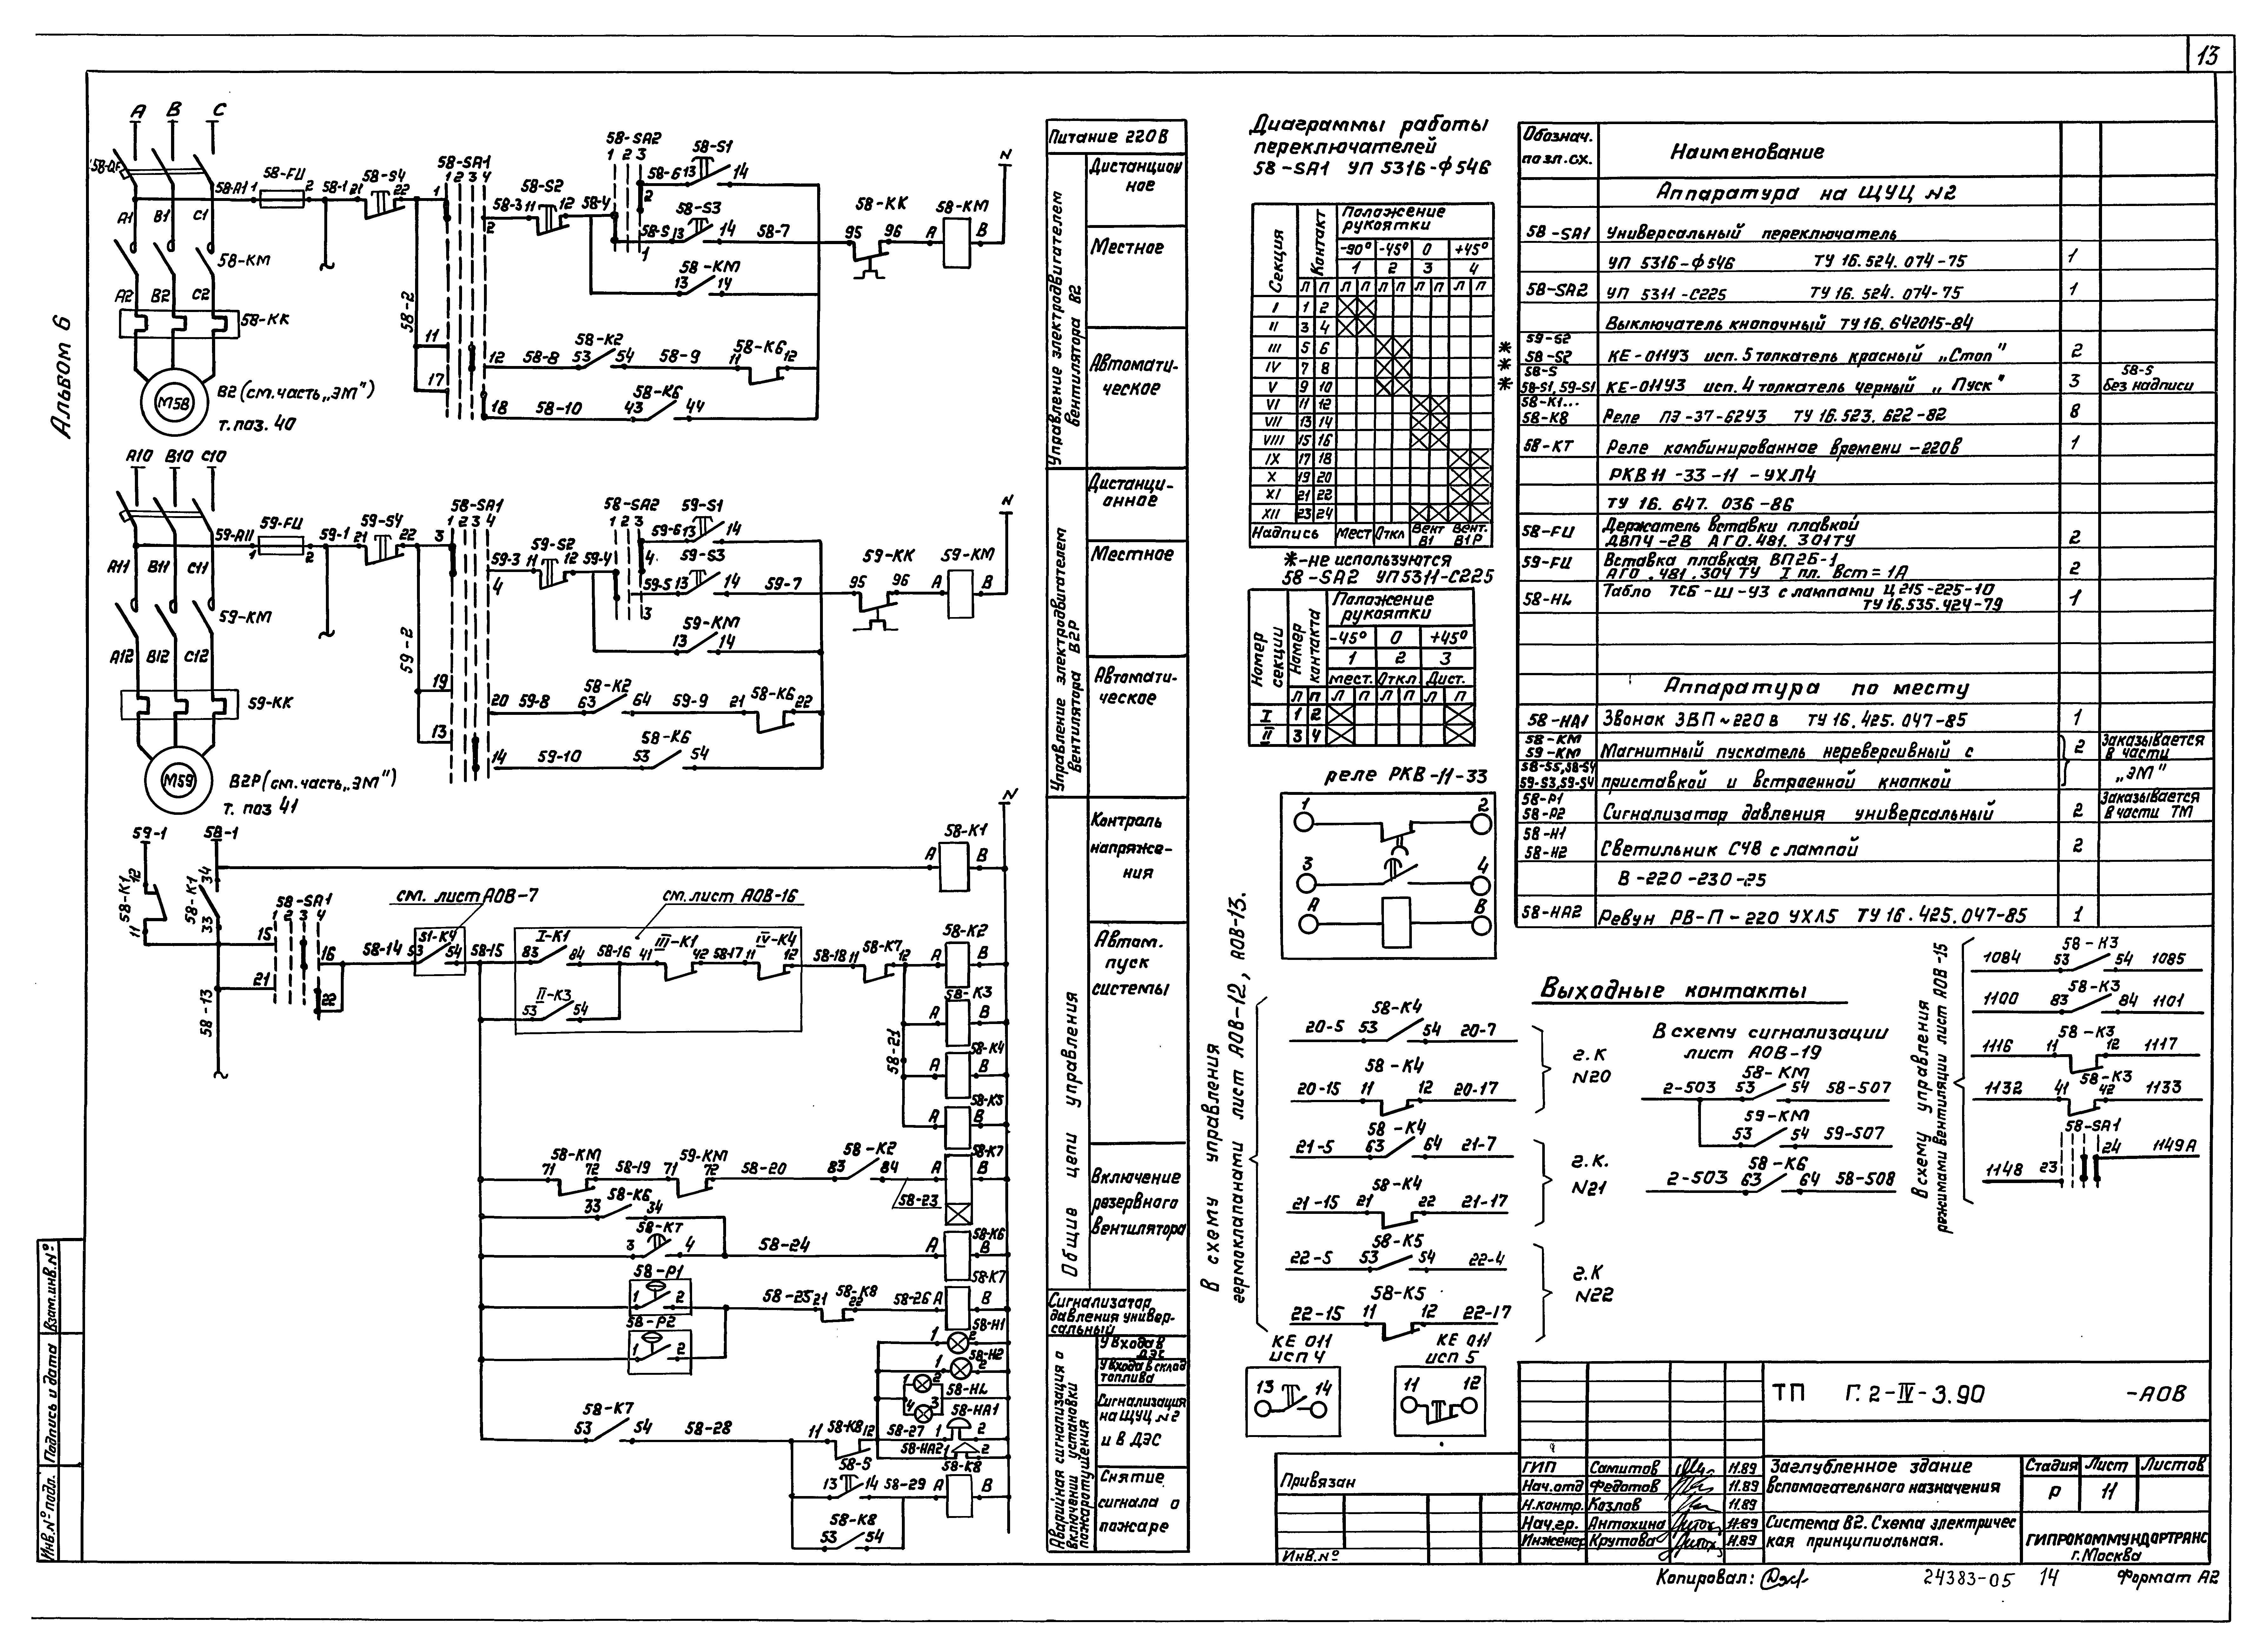 13
Альбом 6
A B C
58-QF
58-A1 1 58-FU 2 58-1 21 58-S4 22
58-SA1
1 2 3 4
58-3 11 58-S2 12 58-4
58-SA2
1 2 3
58-6 13 58-S1 14
58-S3
58-5 13 14 58-7
58-KK
95 96
A 58-KM B
N
A1 B1 C1
58-KM
13 14
58-KM
A2 B2 C2
58-KK
58-2
11
17
12 58-8 53 58-K2 54 58-9 11 58-K6 12
18 58-10 43 58-K6 44
M58
В2 (см. часть „ЭМ")
т. поз. 40
A10 B10 C10
59-A11 1 59-FU 2 59-1 21 59-S4 22 3
58-SA1
1 2 3 4
59-3 11 59-S2 12 59-4
4
58-SA2
1 2 3
59-6 13 59-S1 14
59-S3
59-5 13 14 59-7
59-KK
95 96
A 59-KM B
N
A11 B11 C11
59-KM
59-KM
13 14
A12 B12 C12
59-KK
59-2
19
13
20 59-8 63 58-K2 64 59-9 21 58-K6 22
14 59-10 53 58-K6 54
M59
В2Р (см. часть „ЭМ")
т. поз 41
59-1 58-1
58-K1 12 11
58-K1 34 33
A 58-K1 B
N
58-SA1
1 2 3 4
15 16
21 22
58-13
см. лист АОВ-7
см. лист АОВ-16
58-14 53 51-K4 54 58-15
83 I-K1 84 58-16 41 III-K1 42 58-17 11 IV-K4 12 58-18 11 58-K7 12
53 II-K3 54
58-21
A 58-K2 B
A 58-K3 B
A 58-K4 B
A 58-K5 B
71 58-KM 72 58-19 71 59-KM 72 58-20 83 58-K2 84
58-23
A 58-K7 B
33 58-K6 34
3 58-KT 4 58-24
A 58-K6 B
58-P1
1 2
58-P2
1 2
58-25 21 58-K8 22 58-26 A 58-K7 B
58-H1
1 2
58-H2
1 2
58-HL
1 2
4 3
53 58-K7 54 58-28 11 58-K8 12 58-27 1 58-HA1 2
58-HA2 1 2
58-S
13 14 58-29 A 58-K8 B
58-K8
53 54
Питание 220 В
Управление электродвигателем вентилятора В2
Дистанцион
ное
Местное
Автомати-
ческое
Управление электродвигателем вентилятора В2Р
Дистанци-
онное
Местное
Автомати-
ческое
Общие цепи управления
Контраль
напряже-
ния
Автом.
пуск
системы
Включение
резервного
вентилятора
Сигнализатор
давления универ-
сальный
Аварийная сигнализация о включении установки пожаротушения
У входа в
ДЭС
У входа в склад
топлива
Сигнализация
на ЩУЦ №2
и в ДЭС
Снятие
сигнала о
пожаре
Диаграммы работы
переключателей
58-SA1 УП 5316-Ф546
Секция Контакт Положение рукоятки
-90° -45° 0 +45°
1 2 3 4
Л П Л П Л П Л П Л П
I 1 2
II 3 4
III 5 6 *
IV 7 8 *
V 9 10 *
VI 11 12
VII 13 14
VIII 15 16
IX 17 18
X 19 20
XI 21 22
XII 23 24
Надпись Мест Откл Вент В1 Вент. В1Р
*-не используются
58-SA2 УП5311-С225
Номер секции Номер контакта Положение рукоятки
-45° 0 +45°
1 2 3
мест. Откл. Дист.
Л П Л П Л П Л П
I 1 2
II 3 4
реле РКВ-11-33
1 2
3 4
A B
В схему управления
гермоклапанами лист АОВ-12, АОВ-13.
Выходные контакты
58-K4
20-5 53 54 20-7
58-K4
20-15 11 12 20-17
г.К
N20
58-K4
21-5 63 64 21-7
58-K4
21-15 21 22 21-17
г.К.
N21
58-K5
22-5 53 54 22-4
58-K5
22-15 11 12 22-17
г.К
N22
КЕ 011
исп 4
13 14
КЕ 011
исп 5
11 12
В схему сигнализации
лист АОВ-19
58-KM
2-503 53 54 58-507
59-KM
53 54 59-507
58-K6
2-503 63 64 58-508
В схему управления
режимами вентиляции лист АОВ-15
58-K3
1084 53 54 1085
58-K3
1100 83 84 1101
58-K3
1116 11 12 1117
58-K3
1132 41 42 1133
58-SA1
1148 23 24 1149А
Обознач.
по эл.сх.
Наименование
Аппаратура на ЩУЦ №2
58-SA1 Универсальный переключатель
УП 5316-Ф546 ТУ 16.524.074-75 1
58-SA2 УП 5311-С225 ТУ 16.524.074-75 1
Выключатель кнопочный ТУ 16.642015-84
59-S2
58-S2 КЕ-011У3 исп. 5 толкатель красный „Стоп" 2
58-S
58-S1, 59-S1 КЕ-011У3 исп. 4 толкатель черный „Пуск" 3 58-S без надписи
58-K1...
58-K8 Реле ПЭ-37-62У3 ТУ 16.523.622-82 8
58-KT Реле комбинированное времени -220В 1
РКВ11-33-11-УХЛ4
ТУ 16.647.036-86
58-FU Держатель вставки плавкой
ДВПЧ-2В АГО.481.301ТУ 2
59-FU Вставка плавкая ВП2Б-1
АГО.481.304 ТУ I пл. вст=1А 2
58-HL Табло ТСБ-Ш-У3 с лампами Ц 215-225-10
ТУ16.535.424-79 1
Аппаратура по месту
58-HA1 Звонок ЗВП~220 в ТУ 16.425.047-85 1
58-KM
59-KM Магнитный пускатель нереверсивный с 2 Заказывается в части
58-S5, 58-S4
59-S3, 59-S4 приставкой и встроенной кнопкой „ЭМ"
58-P1
58-P2 Сигнализатор давления универсальный 2 Заказывается в части ТМ
58-H1
58-H2 Светильник СЧВ с лампой 2
В-220-230-25
58-HA2 Ревун РВ-П-220 УХЛ5 ТУ 16.425.047-85 1
ТП Г.2-IV-3.90 -АОВ
ГИП Самитов 11.89
Нач.отд Федотов 11.89
Н.контр. Козлов 11.89
Нач.гр. Антохина 11.89
Инженер Крутова 11.89
Заглубленное здание
вспомогательного назначения
Стадия Лист Листов
Р 11
Система В2. Схема электричес
кая принципиальная.
ГИПРОКОММУНДОРТРАНС
г. Москва
Привязан
Инв.№
Взам.инв.№
Подпись и дата
Инв.№ подл.
Копировал:
24383-05 14
Формат А2